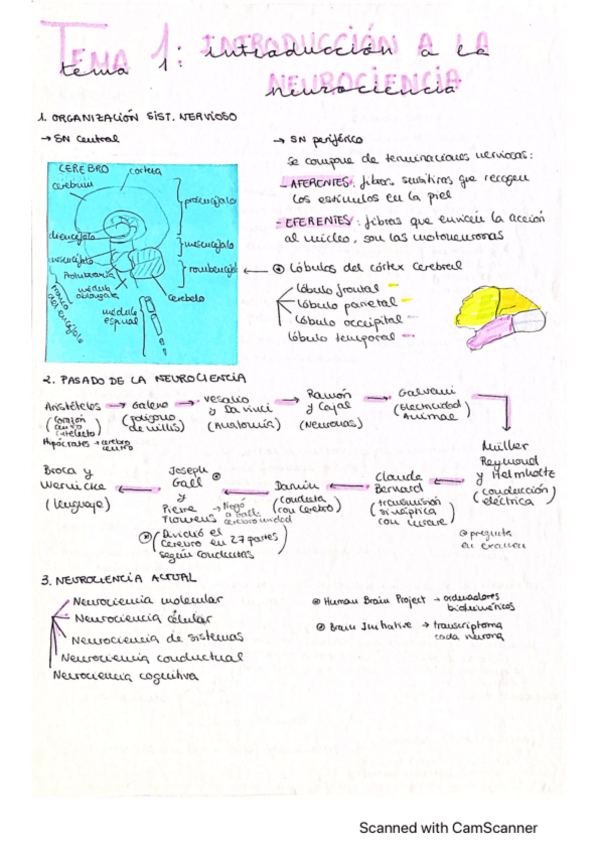 TEMA 1: INTRODUCCIÓN A LA NEUROCIENCIA
tema 1: introducción a la
neurociencia
1. ORGANIZACIÓN SIST. NERVIOSO
→ SN central
CEREBRO
corteza
cerebrum
prosencéfalo
diencéfalo
mesencéfalo
mesencéfalo
rombencéfalo
Protuberancia
médula
oblongata
cerebelo
tronco
del encéfalo
médula
espinal
→ SN periférico
Se compone de terminaciones nerviosas:
- AFERENTES: fibras sensitivas que recogen
los estímulos en la piel
- EFERENTES: fibras que envían la acción
al núcleo, son las motoneuronas
Lóbulos del córtex cerebral
lóbulo frontal
lóbulo parietal
lóbulo occipital
lóbulo temporal
2. PASADO DE LA NEUROCIENCIA
Aristóteles → Galeno → Vesalio y Da Vinci → Ramón y Cajal → Galvani
(Corazón centro intelecto)
(polígono de Willis)
(Anatomía)
(Neuronas)
(Electricidad Animal)
Hipócrates → cerebro centro
Müller
Reymond
y Helmholtz
(conducción eléctrica)
Claude
Bernard
(transmisión sináptica con curare)
Darwin
(conducta con cerebro)
Joseph
Gall
y
Pierre
Flourens
→ Negó a Gall: cerebro unidad
(Dividió el
cerebro en 27 partes
según conductas)
Broca y
Wernicke
(lenguaje)
pregunta
en examen
3. NEUROCIENCIA ACTUAL
Neurociencia molecular
Neurociencia célular
Neurociencia de sistemas
Neurociencia conductual
Neurociencia cognitiva
Human Brain Project → ordenadores
biomiméticos
Brain Initiative → transcriptoma
cada neurona
Scanned with CamScanner